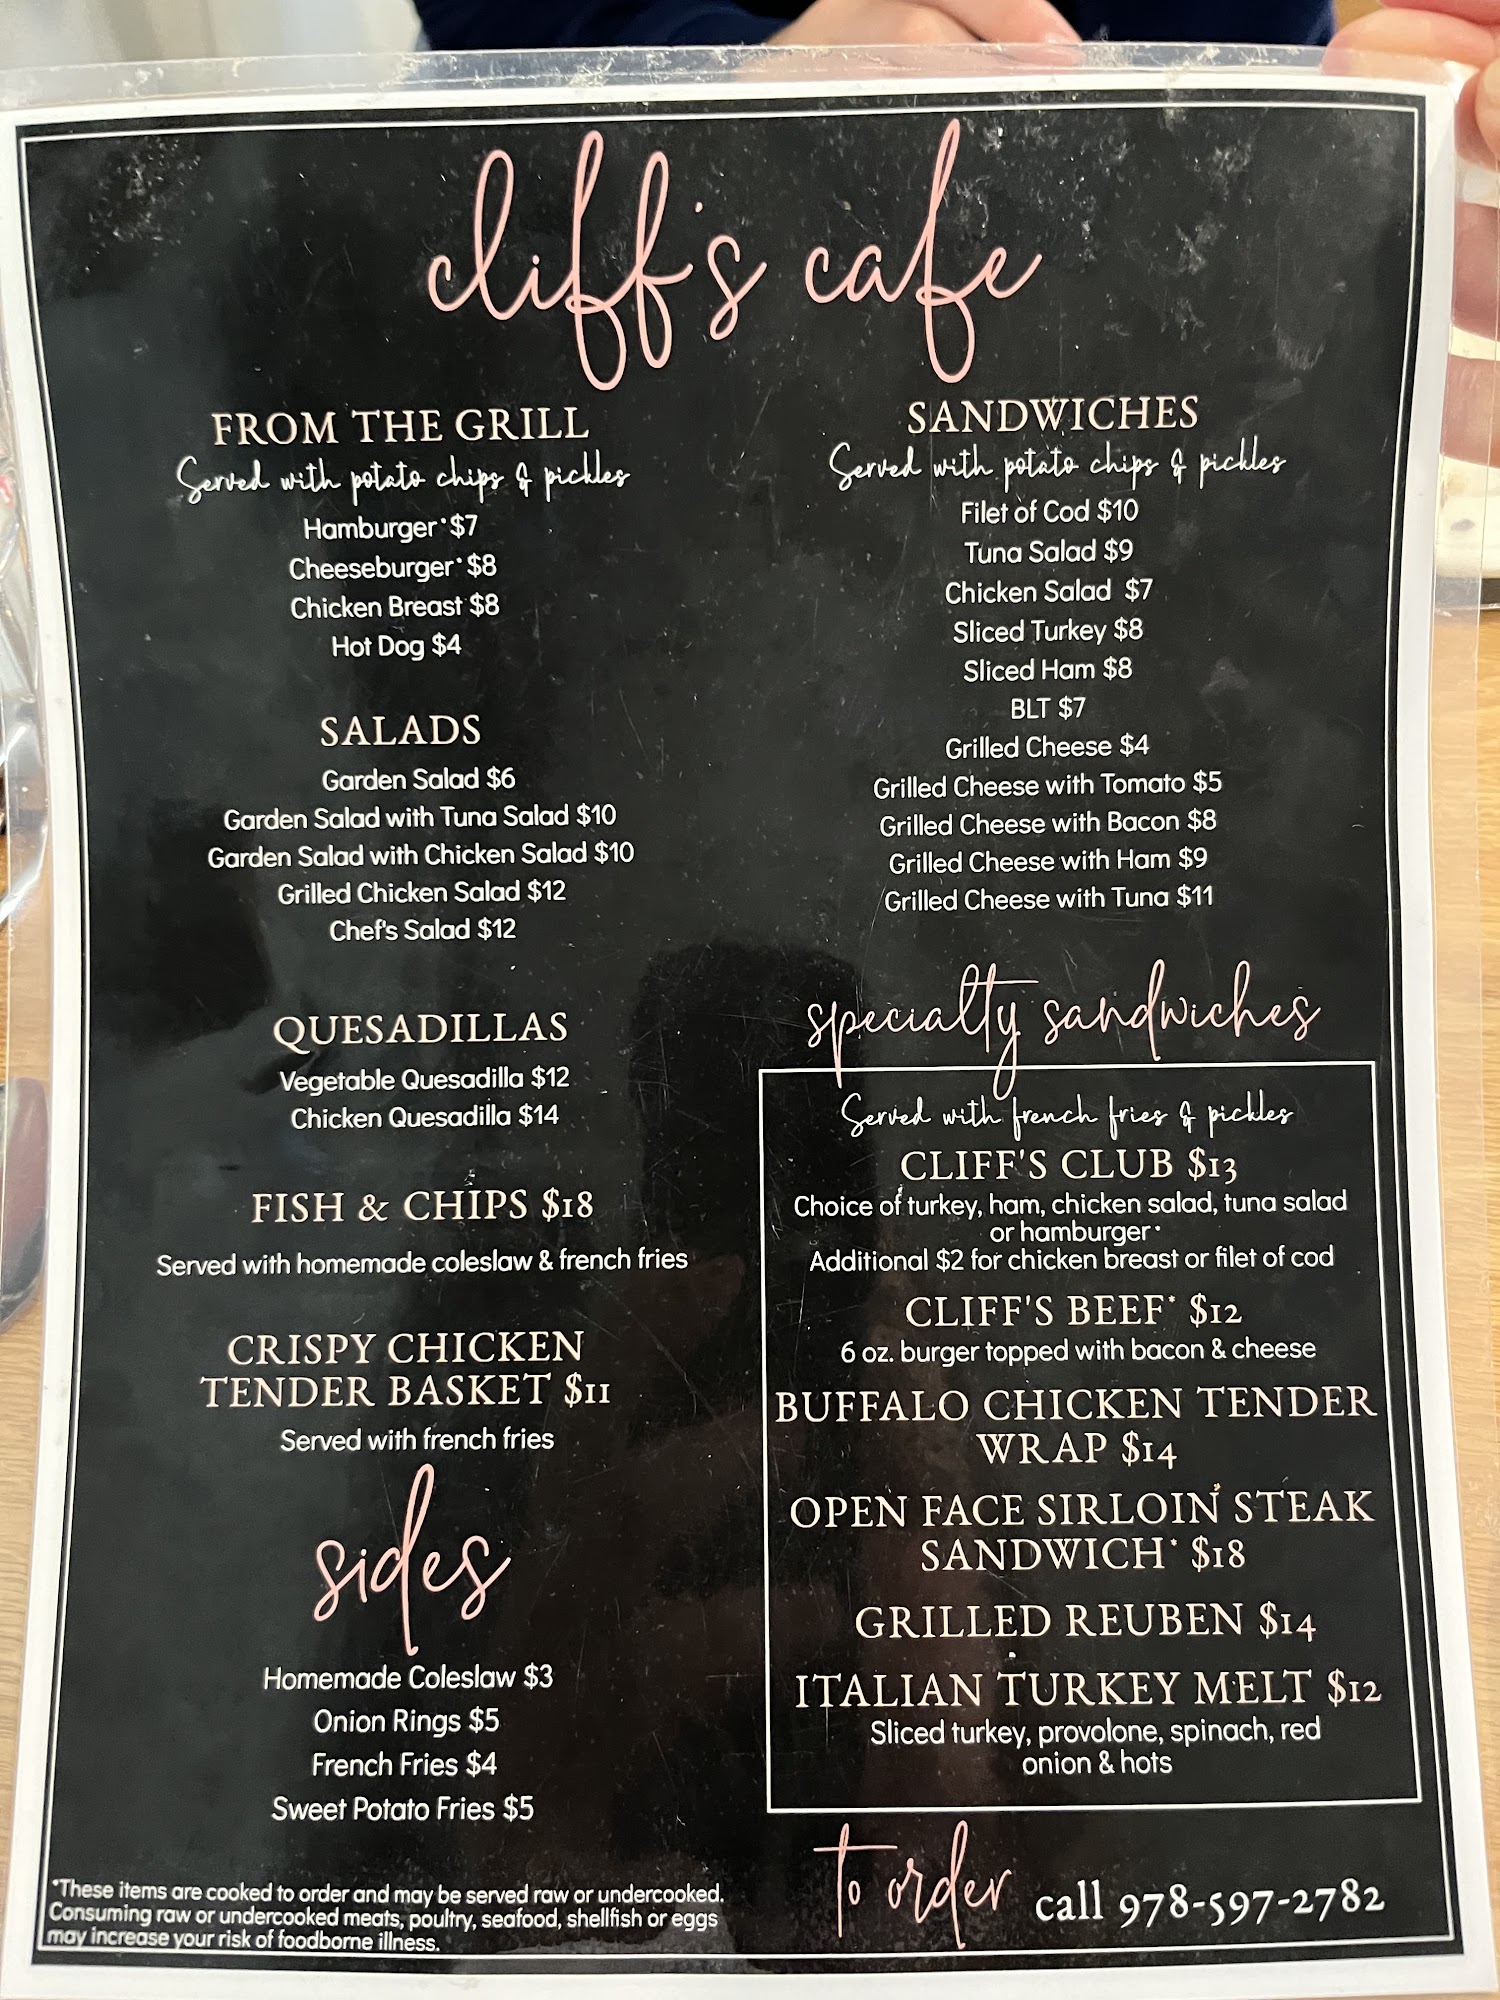 cliff's cafe
FROM THE GRILL
Served with potato chips & pickles
Hamburger* $7
Cheeseburger* $8
Chicken Breast $8
Hot Dog $4
SALADS
Garden Salad $6
Garden Salad with Tuna Salad $10
Garden Salad with Chicken Salad $10
Grilled Chicken Salad $12
Chef's Salad $12
QUESADILLAS
Vegetable Quesadilla $12
Chicken Quesadilla $14
FISH & CHIPS $18
Served with homemade coleslaw & french fries
CRISPY CHICKEN
TENDER BASKET $11
Served with french fries
sides
Homemade Coleslaw $3
Onion Rings $5
French Fries $4
Sweet Potato Fries $5
*These items are cooked to order and may be served raw or undercooked.
Consuming raw or undercooked meats, poultry, seafood, shellfish or eggs
may increase your risk of foodborne illness.
SANDWICHES
Served with potato chips & pickles
Filet of Cod $10
Tuna Salad $9
Chicken Salad $7
Sliced Turkey $8
Sliced Ham $8
BLT $7
Grilled Cheese $4
Grilled Cheese with Tomato $5
Grilled Cheese with Bacon $8
Grilled Cheese with Ham $9
Grilled Cheese with Tuna $11
specialty sandwiches
Served with french fries & pickles
CLIFF'S CLUB $13
Choice of turkey, ham, chicken salad, tuna salad
or hamburger*
Additional $2 for chicken breast or filet of cod
CLIFF'S BEEF* $12
6 oz. burger topped with bacon & cheese
BUFFALO CHICKEN TENDER
WRAP $14
OPEN FACE SIRLOIN STEAK
SANDWICH* $18
GRILLED REUBEN $14
ITALIAN TURKEY MELT $12
Sliced turkey, provolone, spinach, red
onion & hots
to order call 978-597-2782